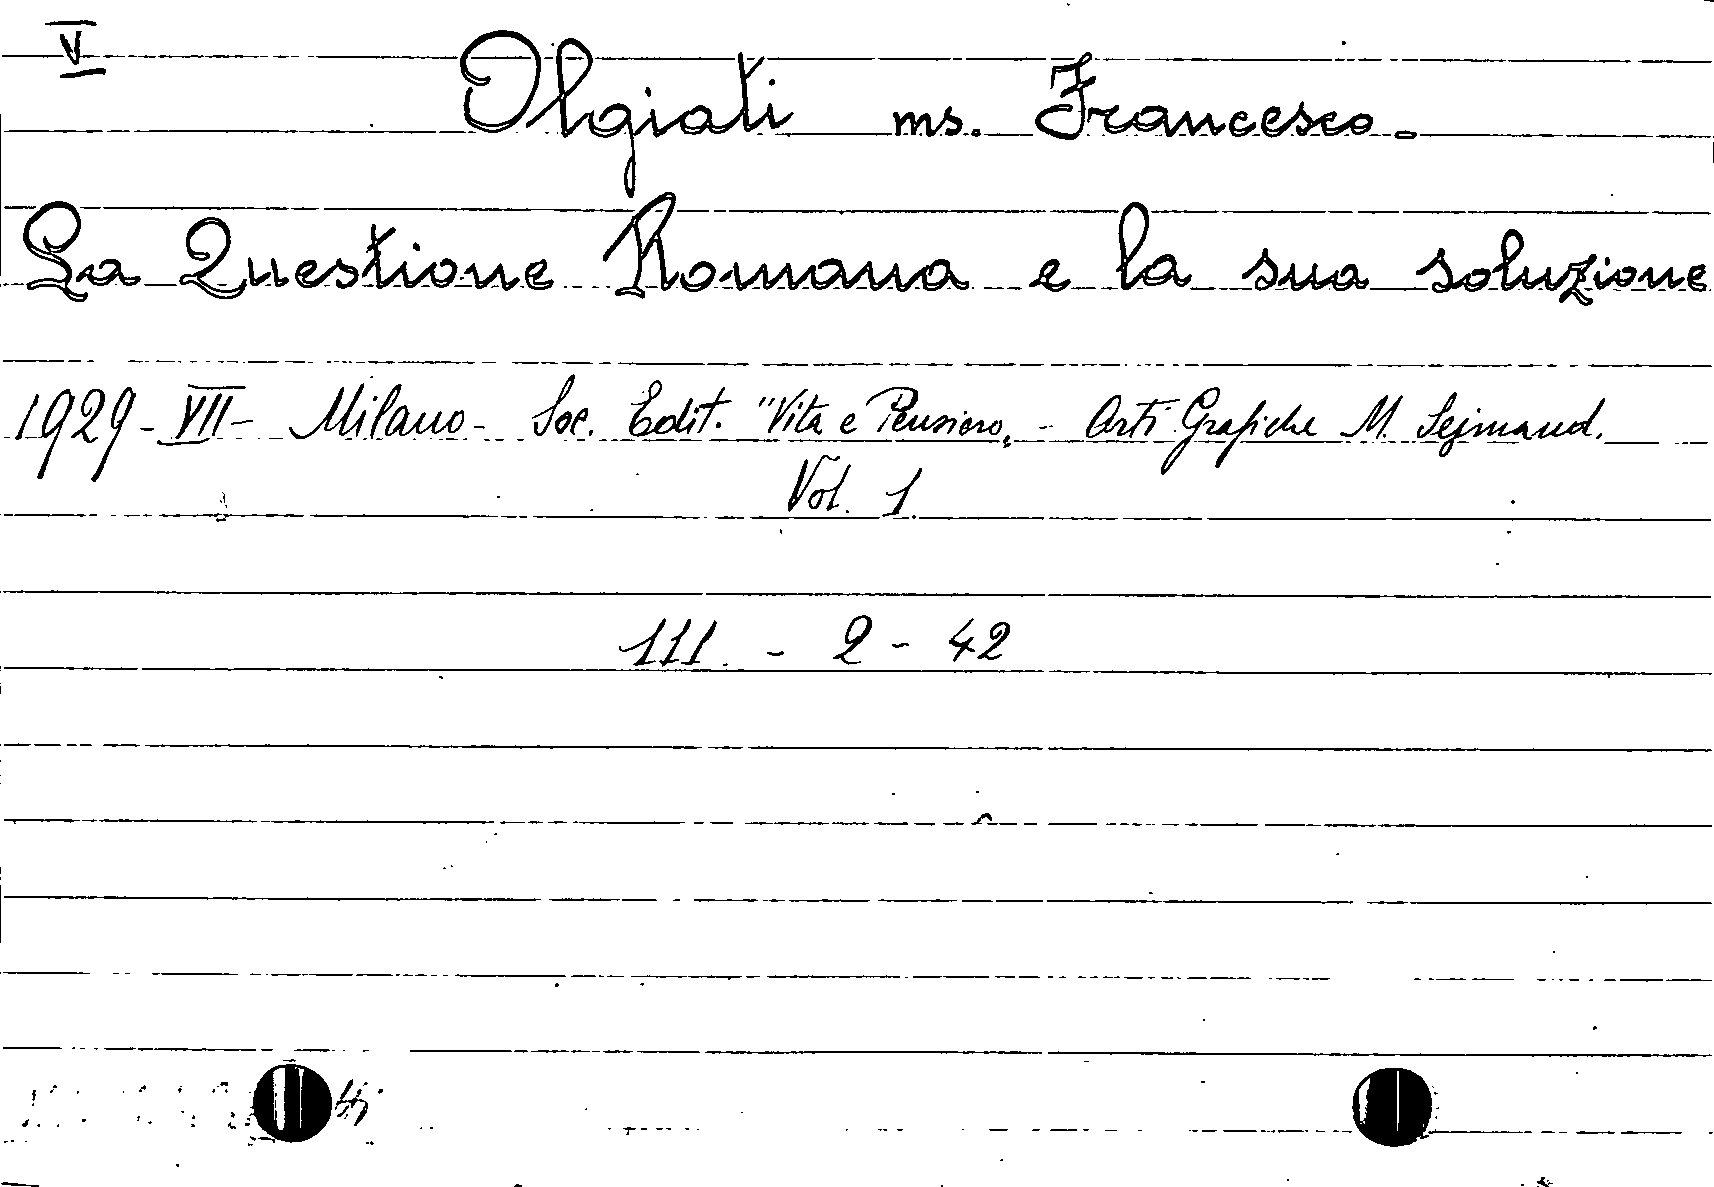 V
Olgiati ms. Francesco.
La Questione Romana e la sua soluzione
1929 - VII - Milano - Soc. Edit. "Vita e Pensiero„ - Arti Grafiche M. Sejmand.
Vol. 1.
111 - 2 - 42